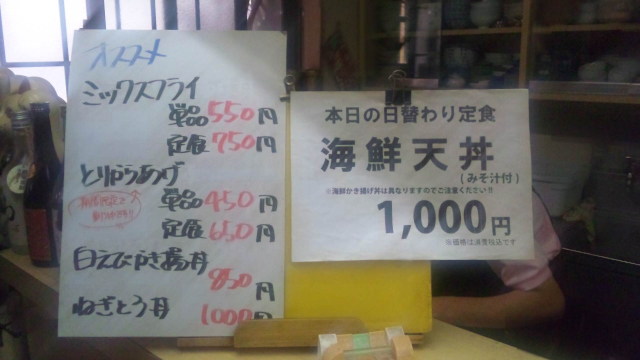 オススメ
ミックスフライ
単品 550円
定食 750円
とりからあげ
単品 450円
定食 650円
白えびかき揚丼
850円
ねぎとろ丼 1000円
本日の日替わり定食
海鮮天丼
(みそ汁付)
※海鮮かき揚げ丼は異なりますのでご注意ください!!
1,000円
※価格は消費税込です